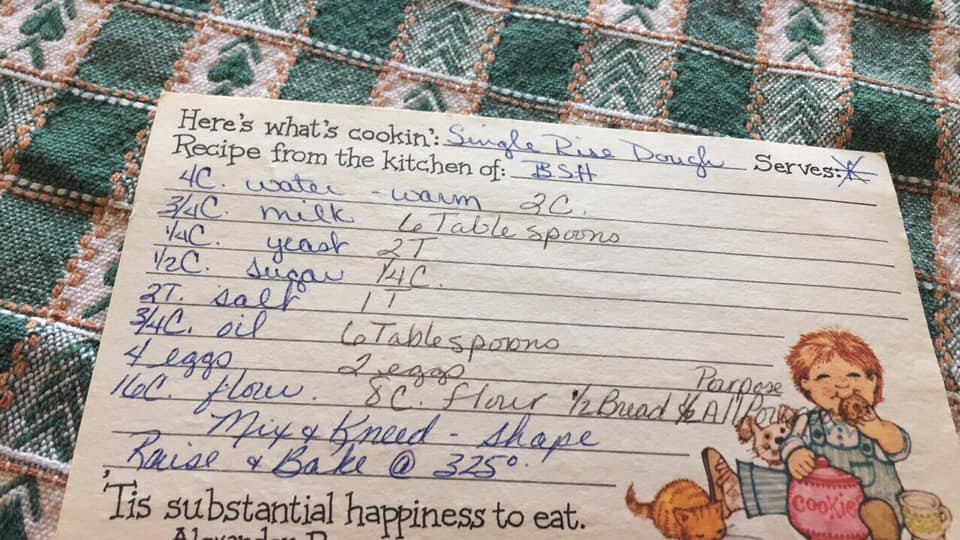 Here's what's cookin': Single Rise Dough Serves:
Recipe from the kitchen of: BSH
4C. water - warm 2C.
3/4C. milk 6 Table spoons
1/4C. yeast 2T
1/2C. sugar 1/4C.
2T. salt 1T
3/4C. oil 6 Tablespoons
4 eggs 2 eggs
16C. flour. 8C. flour 1/2 Bread 1/2 All Purpose
Mix & Kneed - shape
Raise & Bake @ 325°.
'Tis substantial happiness to eat.
Cookie